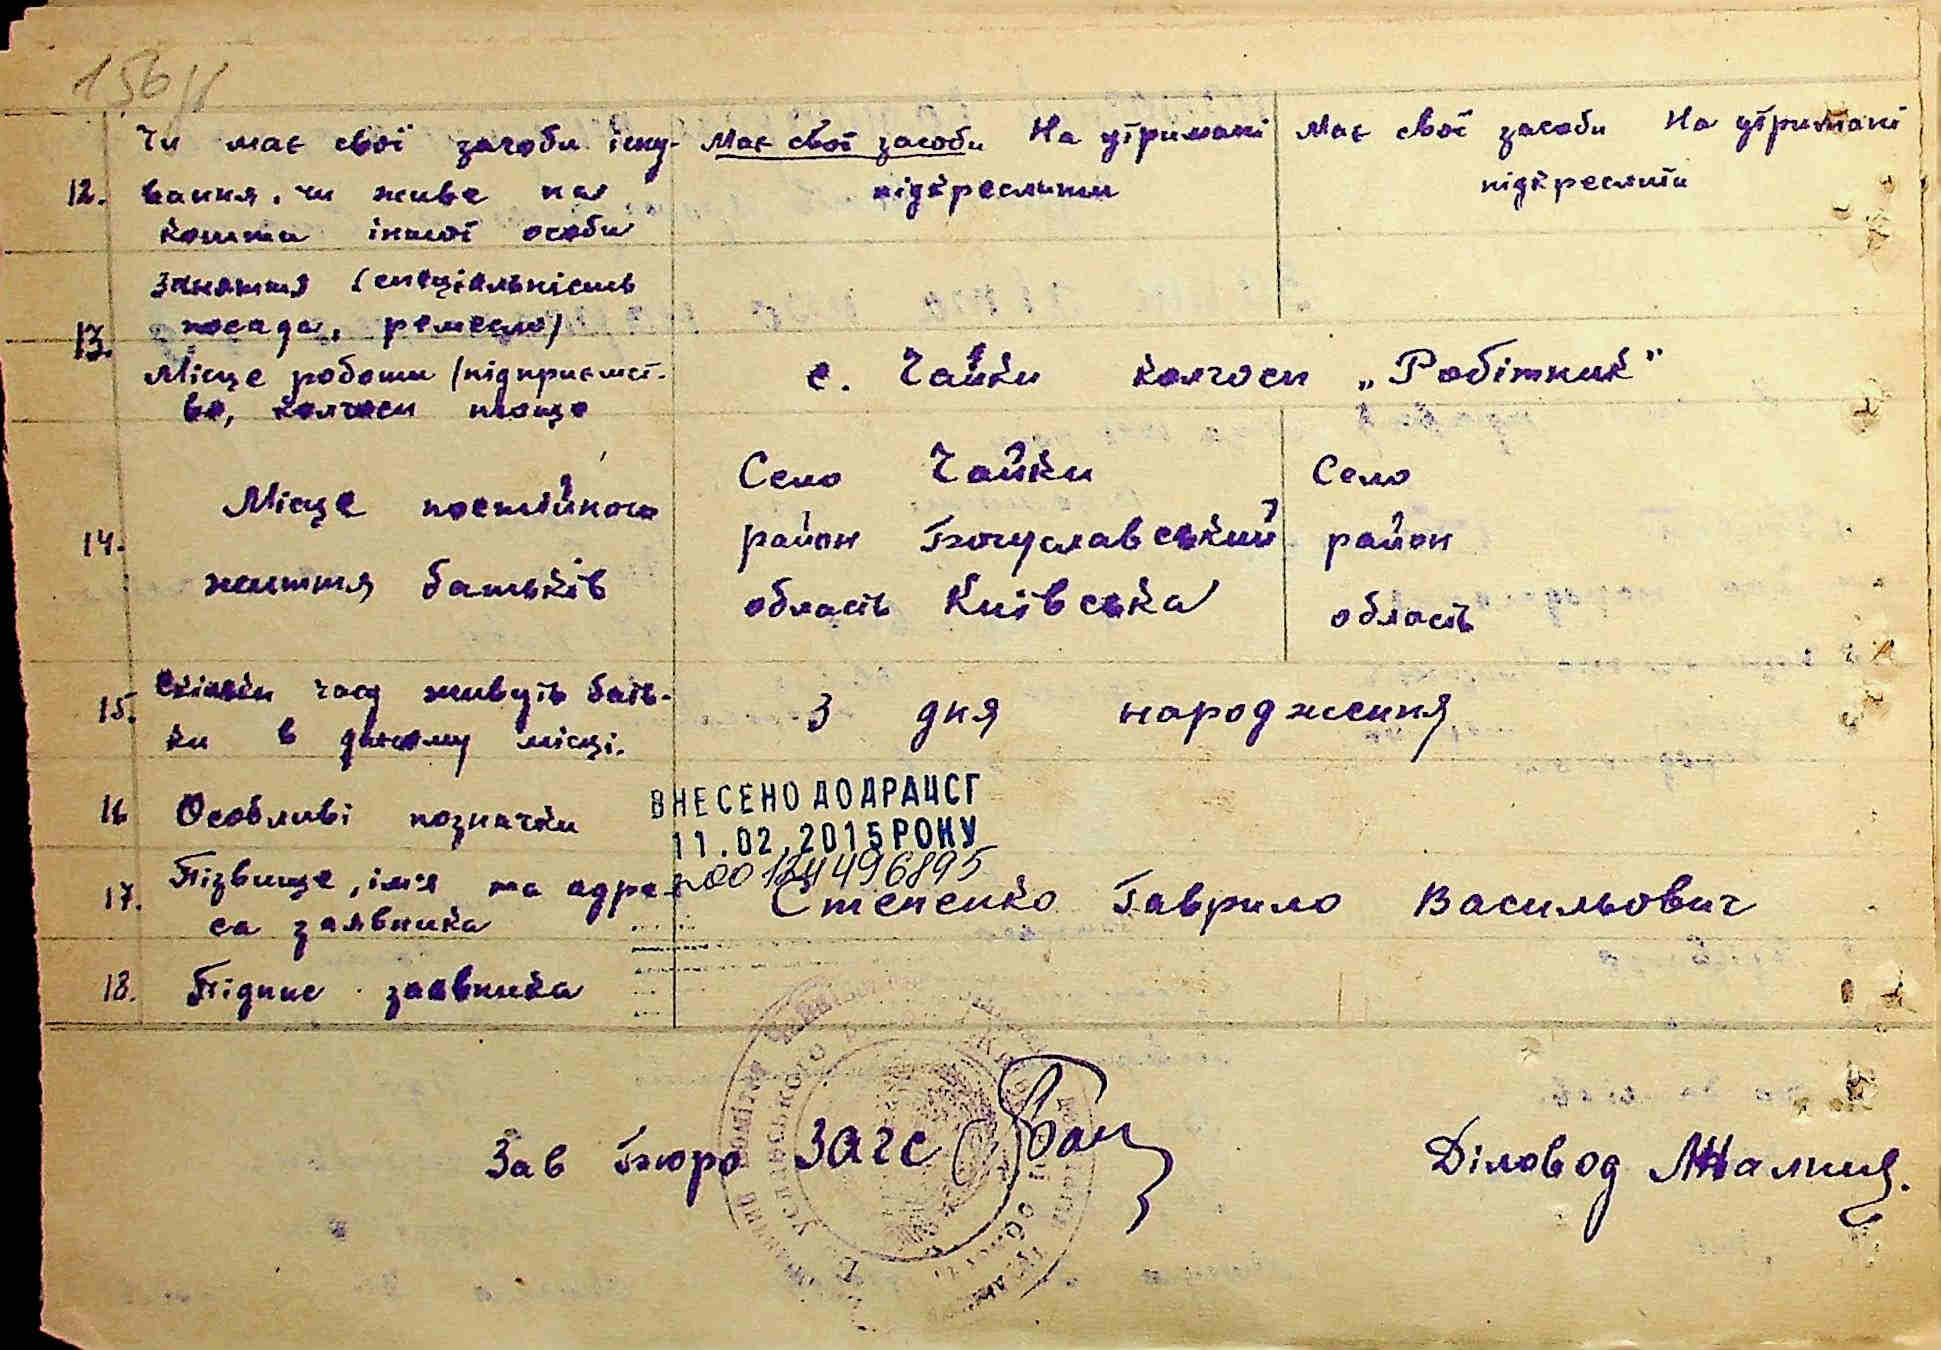 156
12. Чи має свої засоби існу- Має свої засоби На утримані Має свої засоби На утримані
вання, чи живе на підкреслити підкреслити
кошти іншої особи
13. Заняття (спеціальність
посада, ремесло)
Місце роботи (підприємст- с. Чайки колгосп „Робітник"
во, колгосп тощо
14. Місце постійного
життя батьків
Село Чайки
район Богуславський
область Київська
Село
район
область
15. Скільки часу живуть бать- З дня народження
ки в даному місці.
16 Особливі позначки
ВНЕСЕНО ДО ДРАЦСГ
11.02.2015 РОКУ
00124496895
17. Прізвище, ім'я та адре- Степенко Гаврило Васильович
са заявника
18. Підпис заявника
Зав Бюро ЗАГС
Діловод